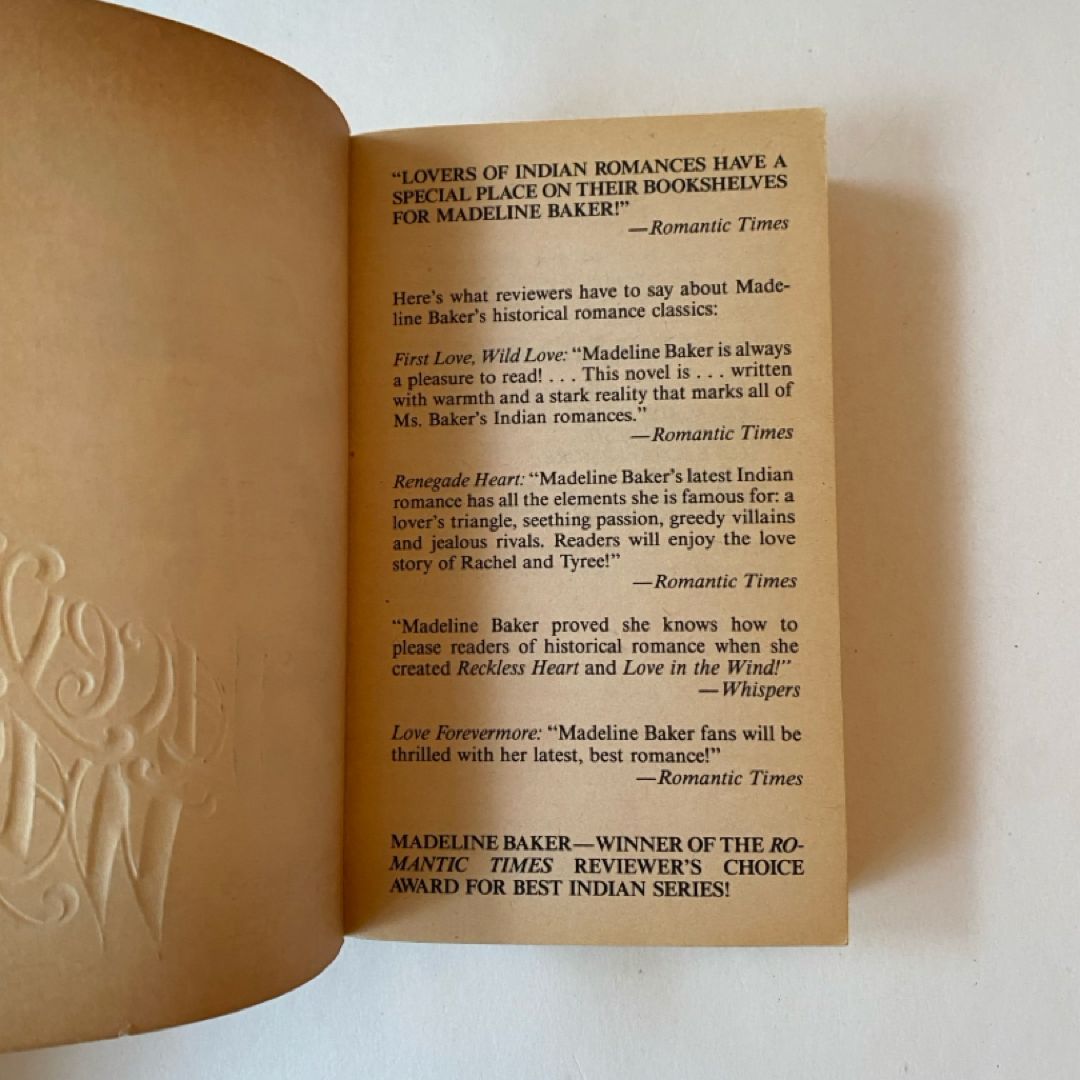 “LOVERS OF INDIAN ROMANCES HAVE A
SPECIAL PLACE ON THEIR BOOKSHELVES
FOR MADELINE BAKER!”
—Romantic Times
Here’s what reviewers have to say about Made-
line Baker’s historical romance classics:
First Love, Wild Love: “Madeline Baker is always
a pleasure to read! . . . This novel is . . . written
with warmth and a stark reality that marks all of
Ms. Baker’s Indian romances.”
—Romantic Times
Renegade Heart: “Madeline Baker’s latest Indian
romance has all the elements she is famous for: a
lover’s triangle, seething passion, greedy villains
and jealous rivals. Readers will enjoy the love
story of Rachel and Tyree!”
—Romantic Times
“Madeline Baker proved she knows how to
please readers of historical romance when she
created Reckless Heart and Love in the Wind!”
—Whispers
Love Forevermore: “Madeline Baker fans will be
thrilled with her latest, best romance!”
—Romantic Times
MADELINE BAKER—WINNER OF THE RO-
MANTIC TIMES REVIEWER’S CHOICE
AWARD FOR BEST INDIAN SERIES!